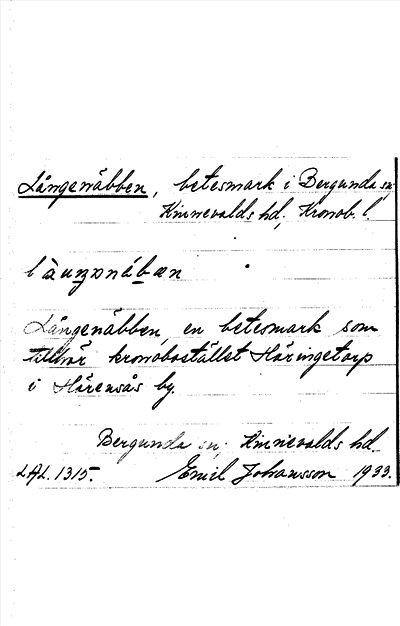 Långenäbben, betesmark i Bergunda sn
Kinnevalds hd, Kronob. l.
Långenäbben, en betesmark som
tillhör kronobostället Häringetorp
i Härensås by.
Bergunda sn, Kinnevalds hd.
LAL. 1315. Emil Johansson 1933.